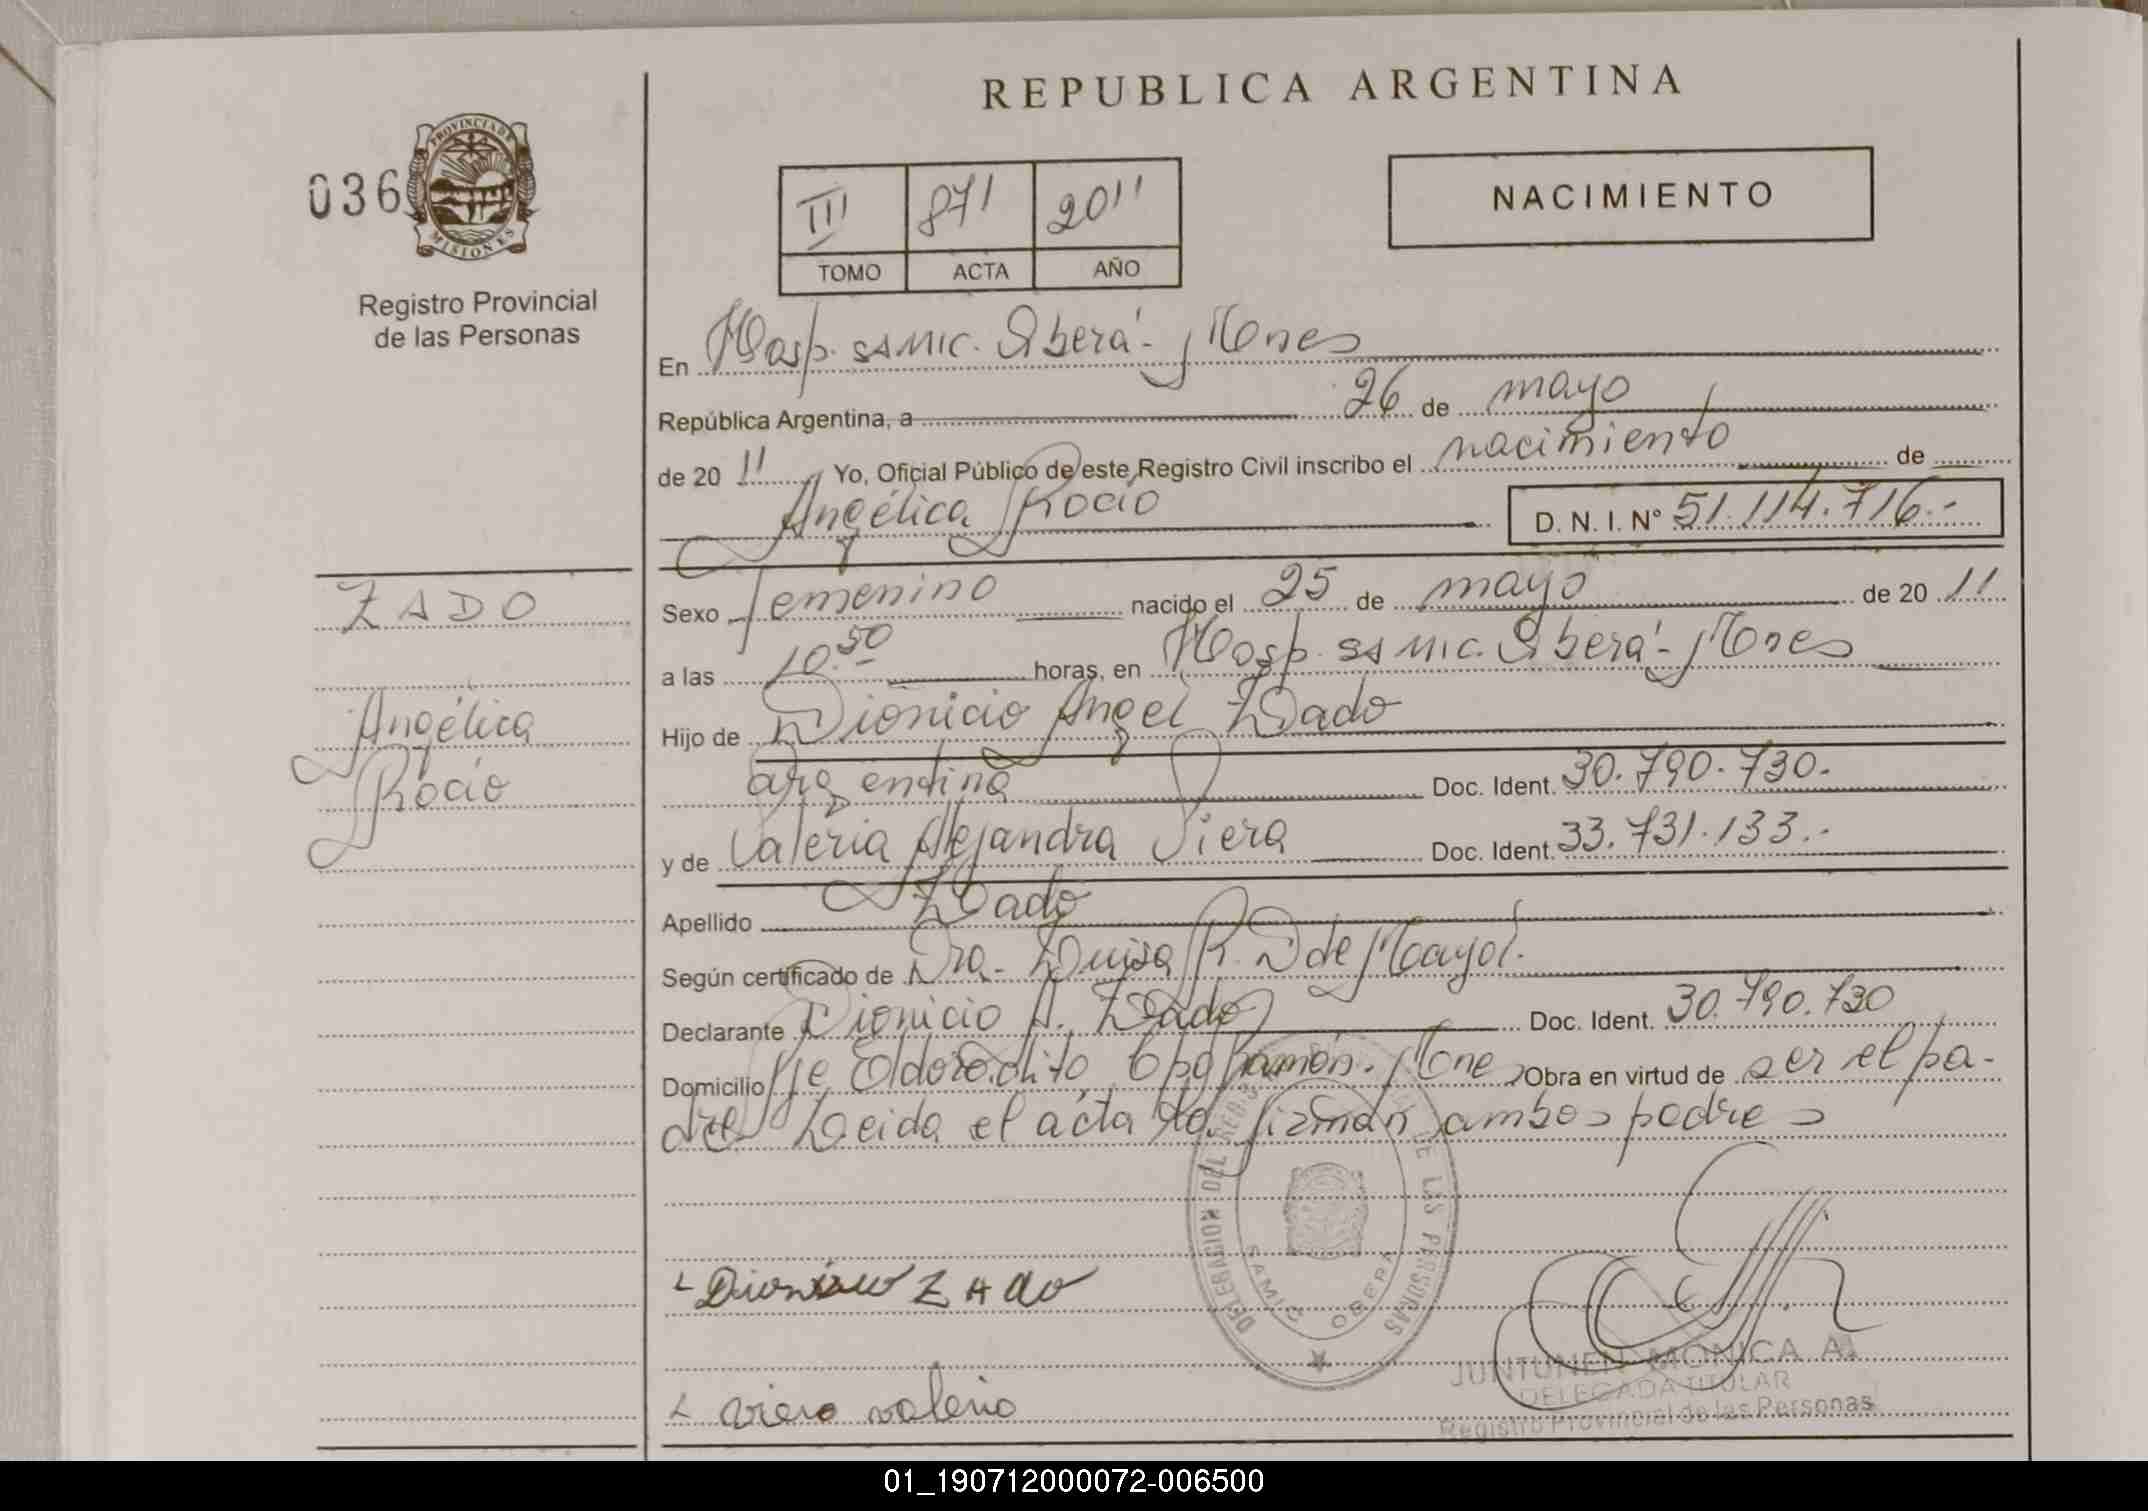 REPUBLICA ARGENTINA
036
PROVINCIA DE
MISIONES
Registro Provincial
de las Personas
III 871 2011
TOMO ACTA AÑO
NACIMIENTO
En Hosp. SAMIC. Oberá - Mnes
República Argentina, a 26 de mayo
de 20 11 Yo, Oficial Público de este Registro Civil inscribo el nacimiento de
Angélica Rocío D. N. I. Nº 51.114.716.-
ZADO
Angélica
Rocío
Sexo femenino nacido el 25 de mayo de 20 11
a las 10.50 horas, en Hosp. SAMIC. Oberá - Mnes
Hijo de Dionicio Angel Zado
argentina Doc. Ident. 30.790.730.
y de Valeria Alejandra Viera Doc. Ident. 33.731.133.-
Apellido Zado
Según certificado de Dra. Luisa R. D de Mayol.
Declarante Dionicio A. Zado Doc. Ident. 30.790.730
Domicilio Eldoradito Cpo Ramón. Mnes Obra en virtud de ser el pa-
dre Leida el acta la firman ambos padres
DELEGACION DEL REG. DE LAS PERSONAS
SAMIC OBERA
Dionisio ZAdo
viera valeria
JUNTUNEN MONICA A.
DELEGADA TITULAR
Registro Provincial de las Personas
01_190712000072-006500